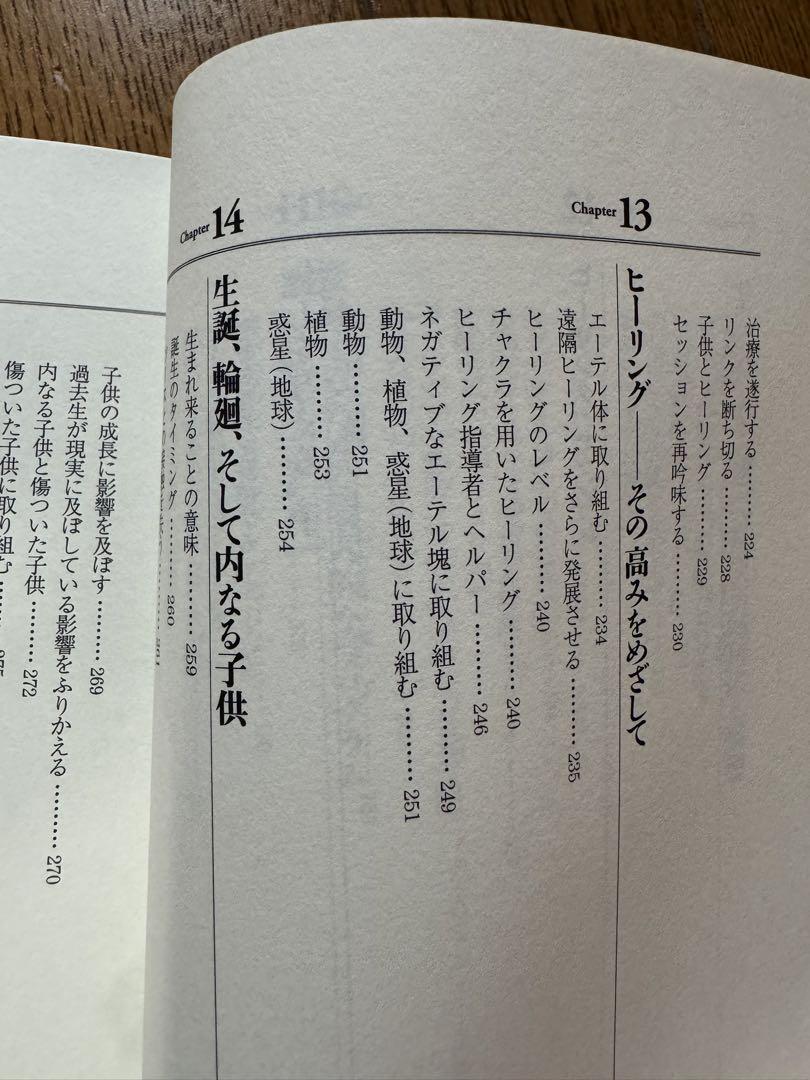 治療を遂行する………224
リンクを断ち切る………228
子供とヒーリング………229
セッションを再吟味する………230
Chapter 13
ヒーリング――その高みをめざして
エーテル体に取り組む………234
遠隔ヒーリングをさらに発展させる………235
ヒーリングのレベル………240
チャクラを用いたヒーリング………240
ヒーリング指導者とヘルパー………246
ネガティブなエーテル塊に取り組む………249
動物、植物、惑星(地球)に取り組む………251
動物………251
植物………253
惑星(地球)………254
Chapter 14
生誕、輪廻、そして内なる子供
生まれ来ることの意味………259
誕生のタイミング………260
子供の成長に影響を及ぼす………269
過去生が現実に及ぼしている影響をふりかえる………270
内なる子供と傷ついた子供………272
傷ついた子供に取り組む………275